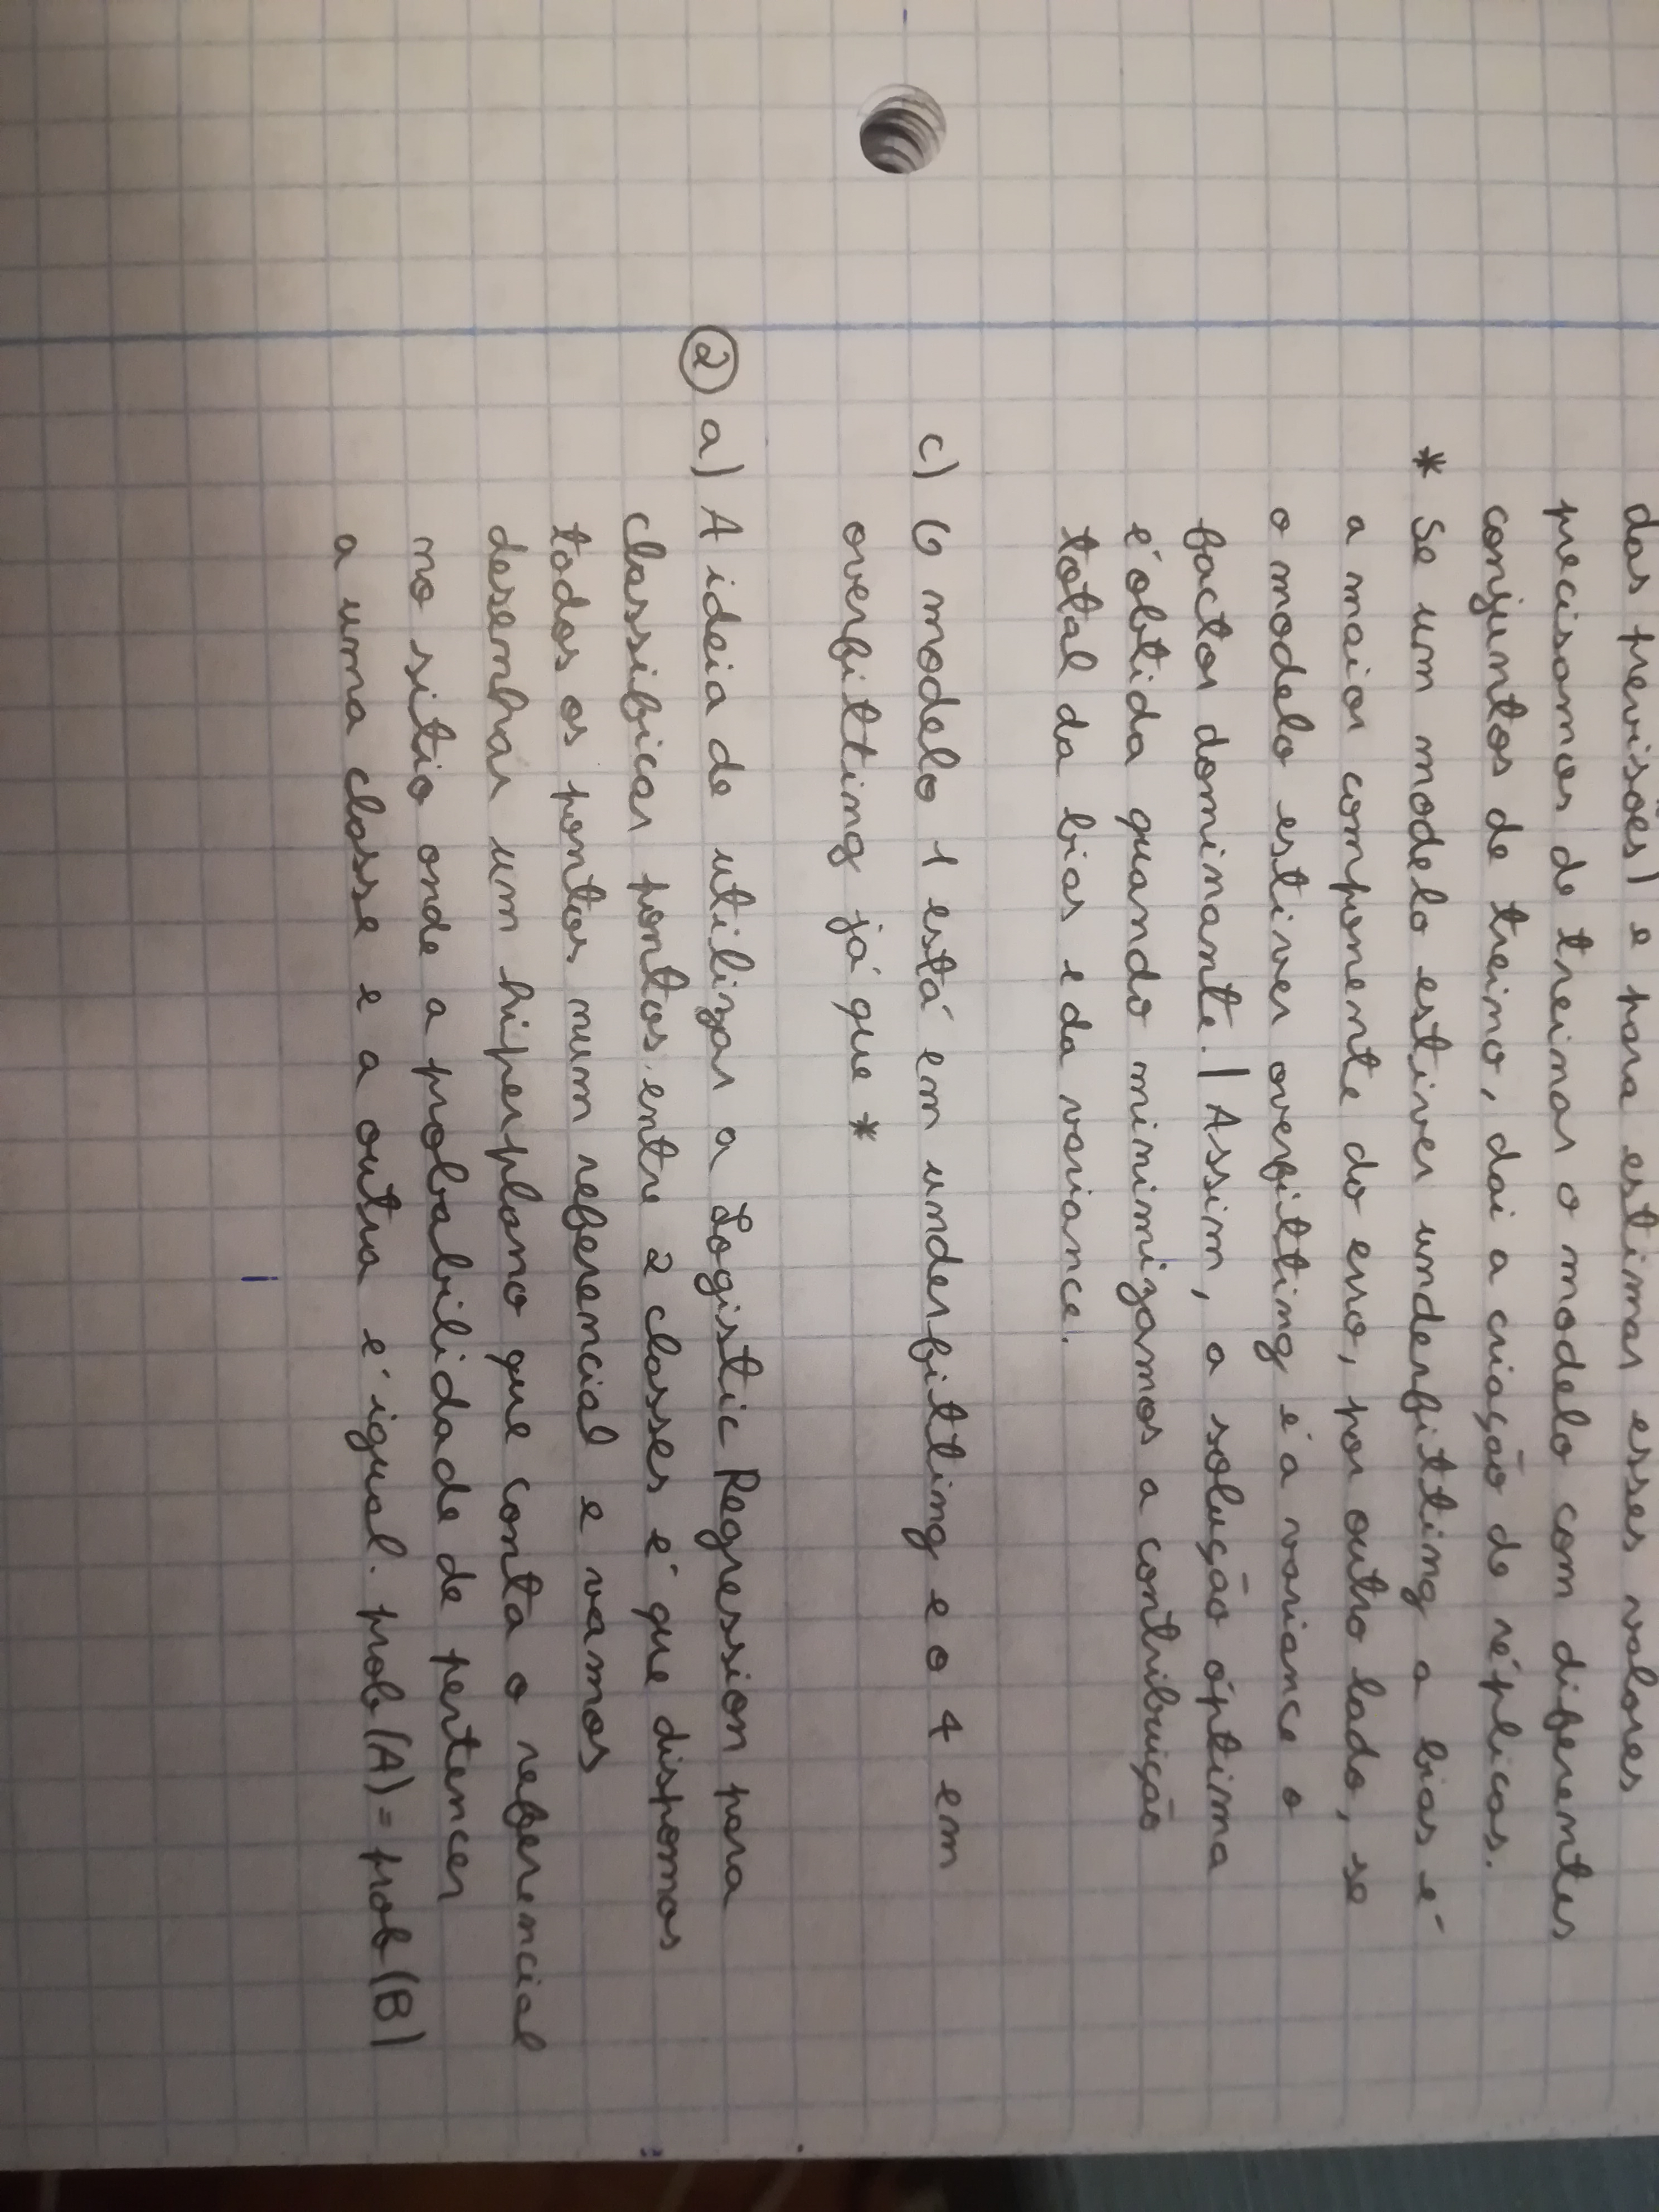 das previsões) e para estimar esses valores
precisamos de treinar o modelo com diferentes
conjuntos de treino, dai a criação de réplicas.
* Se um modelo estiver underfitting a bias é
a maior componente do erro, por outro lado, se
o modelo estiver overfitting é a variance o
factor dominante. | Assim, a solução óptima
é obtida quando minimizamos a contribuição
total da bias e da variance.
c) O modelo 1 está em underfitting e o 4 em
overfitting já que *
② a) A ideia de utilizar a Logistic Regression para
classificar pontos entre 2 classes é que dispomos
todos os pontos num referencial e vamos
desenhar um hiperplano que conta o referencial
no sitio onde a probabilidade de pertencer
a uma classe e a outra é igual. prob(A) = prob(B)